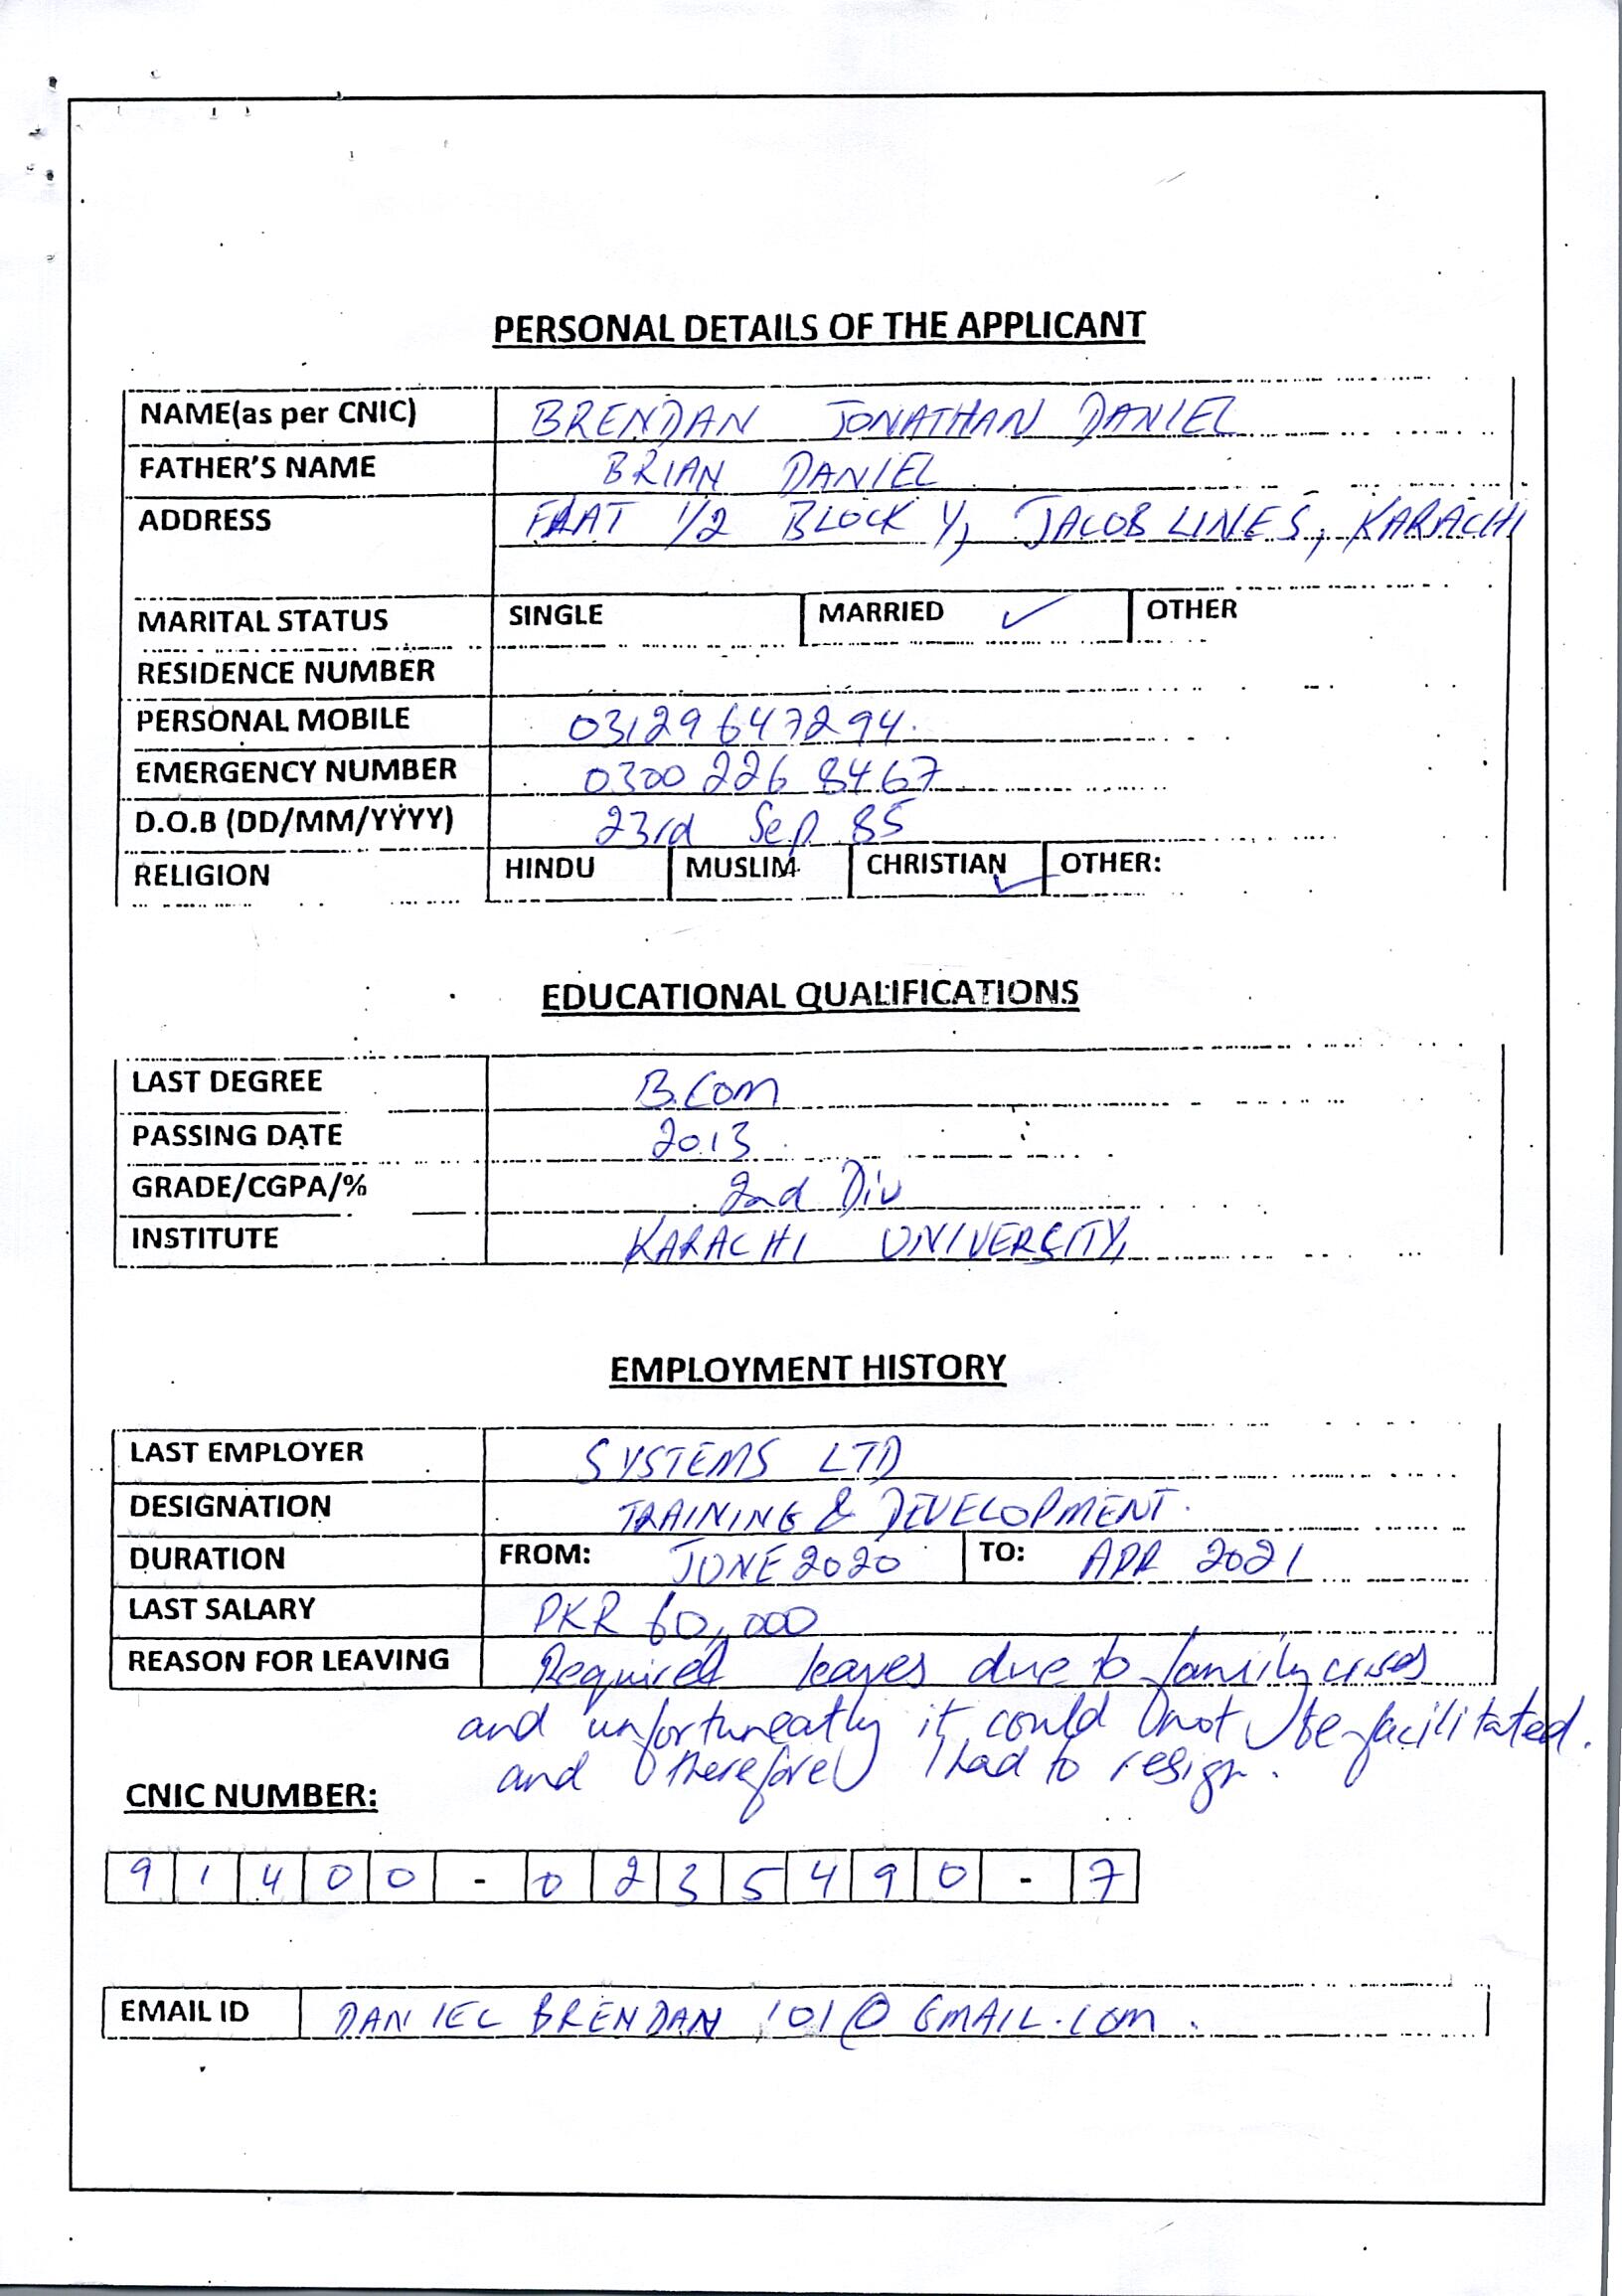 PERSONAL DETAILS OF THE APPLICANT
NAME(as per CNIC) BRENDAN JONATHAN DANIEL
FATHER'S NAME BRIAN DANIEL
ADDRESS FLAT 1/2 BLOCK Y, JACOB LINES, KARACHI
MARITAL STATUS SINGLE MARRIED ✓ OTHER
RESIDENCE NUMBER
PERSONAL MOBILE 03129647294.
EMERGENCY NUMBER 0300 226 8467
D.O.B (DD/MM/YYYY) 23rd Sep 85
RELIGION HINDU MUSLIM CHRISTIAN ✓ OTHER:
EDUCATIONAL QUALIFICATIONS
LAST DEGREE B.Com
PASSING DATE 2013
GRADE/CGPA/% 2nd Div
INSTITUTE KARACHI UNIVERSITY,
EMPLOYMENT HISTORY
LAST EMPLOYER SYSTEMS LTD
DESIGNATION TRAINING & DEVELOPMENT.
DURATION FROM: JUNE 2020 TO: APR 2021
LAST SALARY PKR 60,000
REASON FOR LEAVING Required leaves due to family crises
and unfortuneatly it could not be facilitated.
and therefore I had to resign.
CNIC NUMBER:
91400-0235490-7
EMAIL ID DANIEL BRENDAN 101@GMAIL.COM.